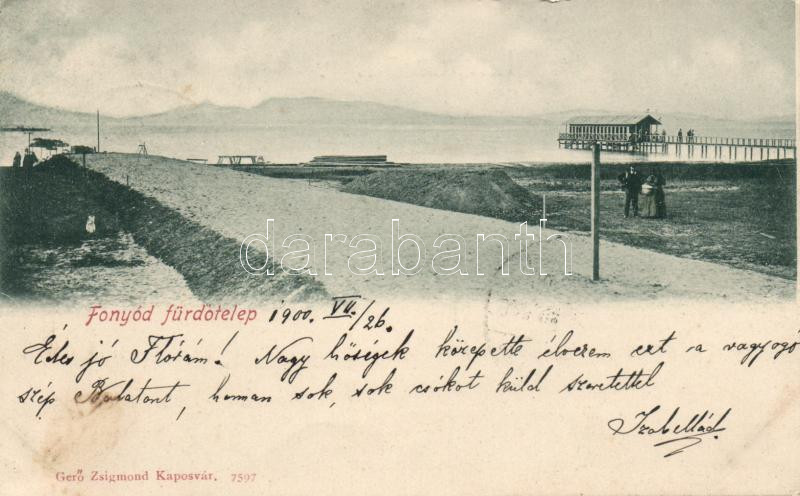 darabanth
Fonyód fürdőtelep 1900. VII/26.
Édes jó Flórám! Nagy hőségek közepette élvezem ezt a ragyogó
szép Balatont, honnan sok, sok csókot küld szeretettel
Izabellád
Gerő Zsigmond Kaposvár. 7597